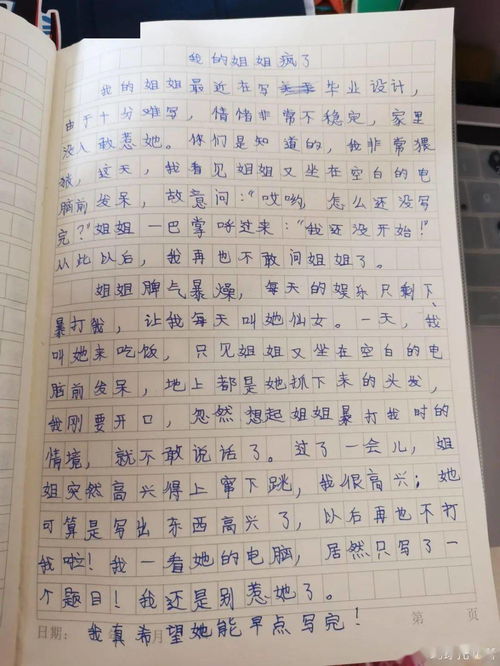 我的姐姐疯了
我的姐姐最近在写毕业设计，
由于十分难写，情绪非常不稳定，家里
没人敢惹她。你们是知道的，我非常猥
琐，这天，我看见姐姐又坐在空白的电
脑前发呆，故意问："哎哟，怎么还没写
完？"姐姐一巴掌呼过来："我还没开始！"
从此以后，我再也不敢问姐姐了。
姐姐脾气暴燥，每天的娱乐只剩下
暴打我，让我每天叫她仙女。一天，我
叫她来吃饭，只见姐姐又坐在空白的电
脑前发呆，地上都是她抓下来的头发，
我刚要开口，忽然想起姐姐暴打我时的
情境，就不敢说话了。过了一会儿，姐
姐突然高兴得上窜下跳，我很高兴；她
可算是写出东西高兴了，以后再也不打
我啦！我一看她的电脑，居然只写了一
个题目！我还是别惹她了。
我真希望她能早点写完！
日期： 月
第 页